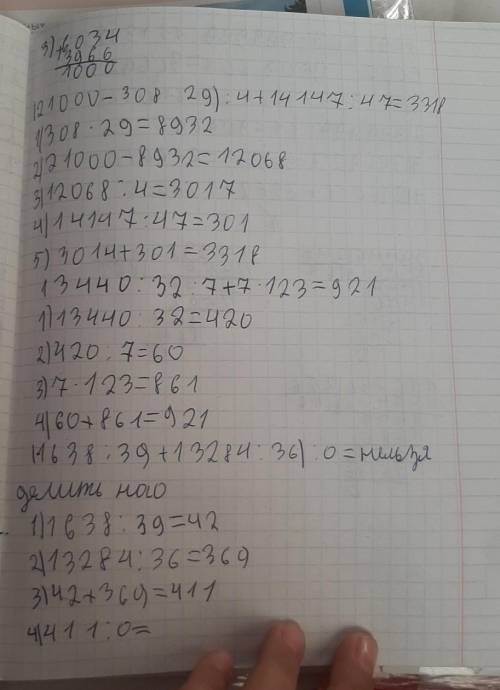 3) 6034
+ 3966
1000
(21000-308 29):4+14147:47=3318
1) 308·29=8932
2) 21000-8932=12068
3) 12068:4=3017
4) 14147:47=301
5) 3014+301=3318
13440:32:7+7·123=921
1) 13440:32=420
2) 420:7=60
3) 7·123=861
4) 60+861=921
(1638:39+13284:36):0=нельзя
делить ного
1) 1638:39=42
2) 13284:36=369
3) 42+369=411
4) 411:0=